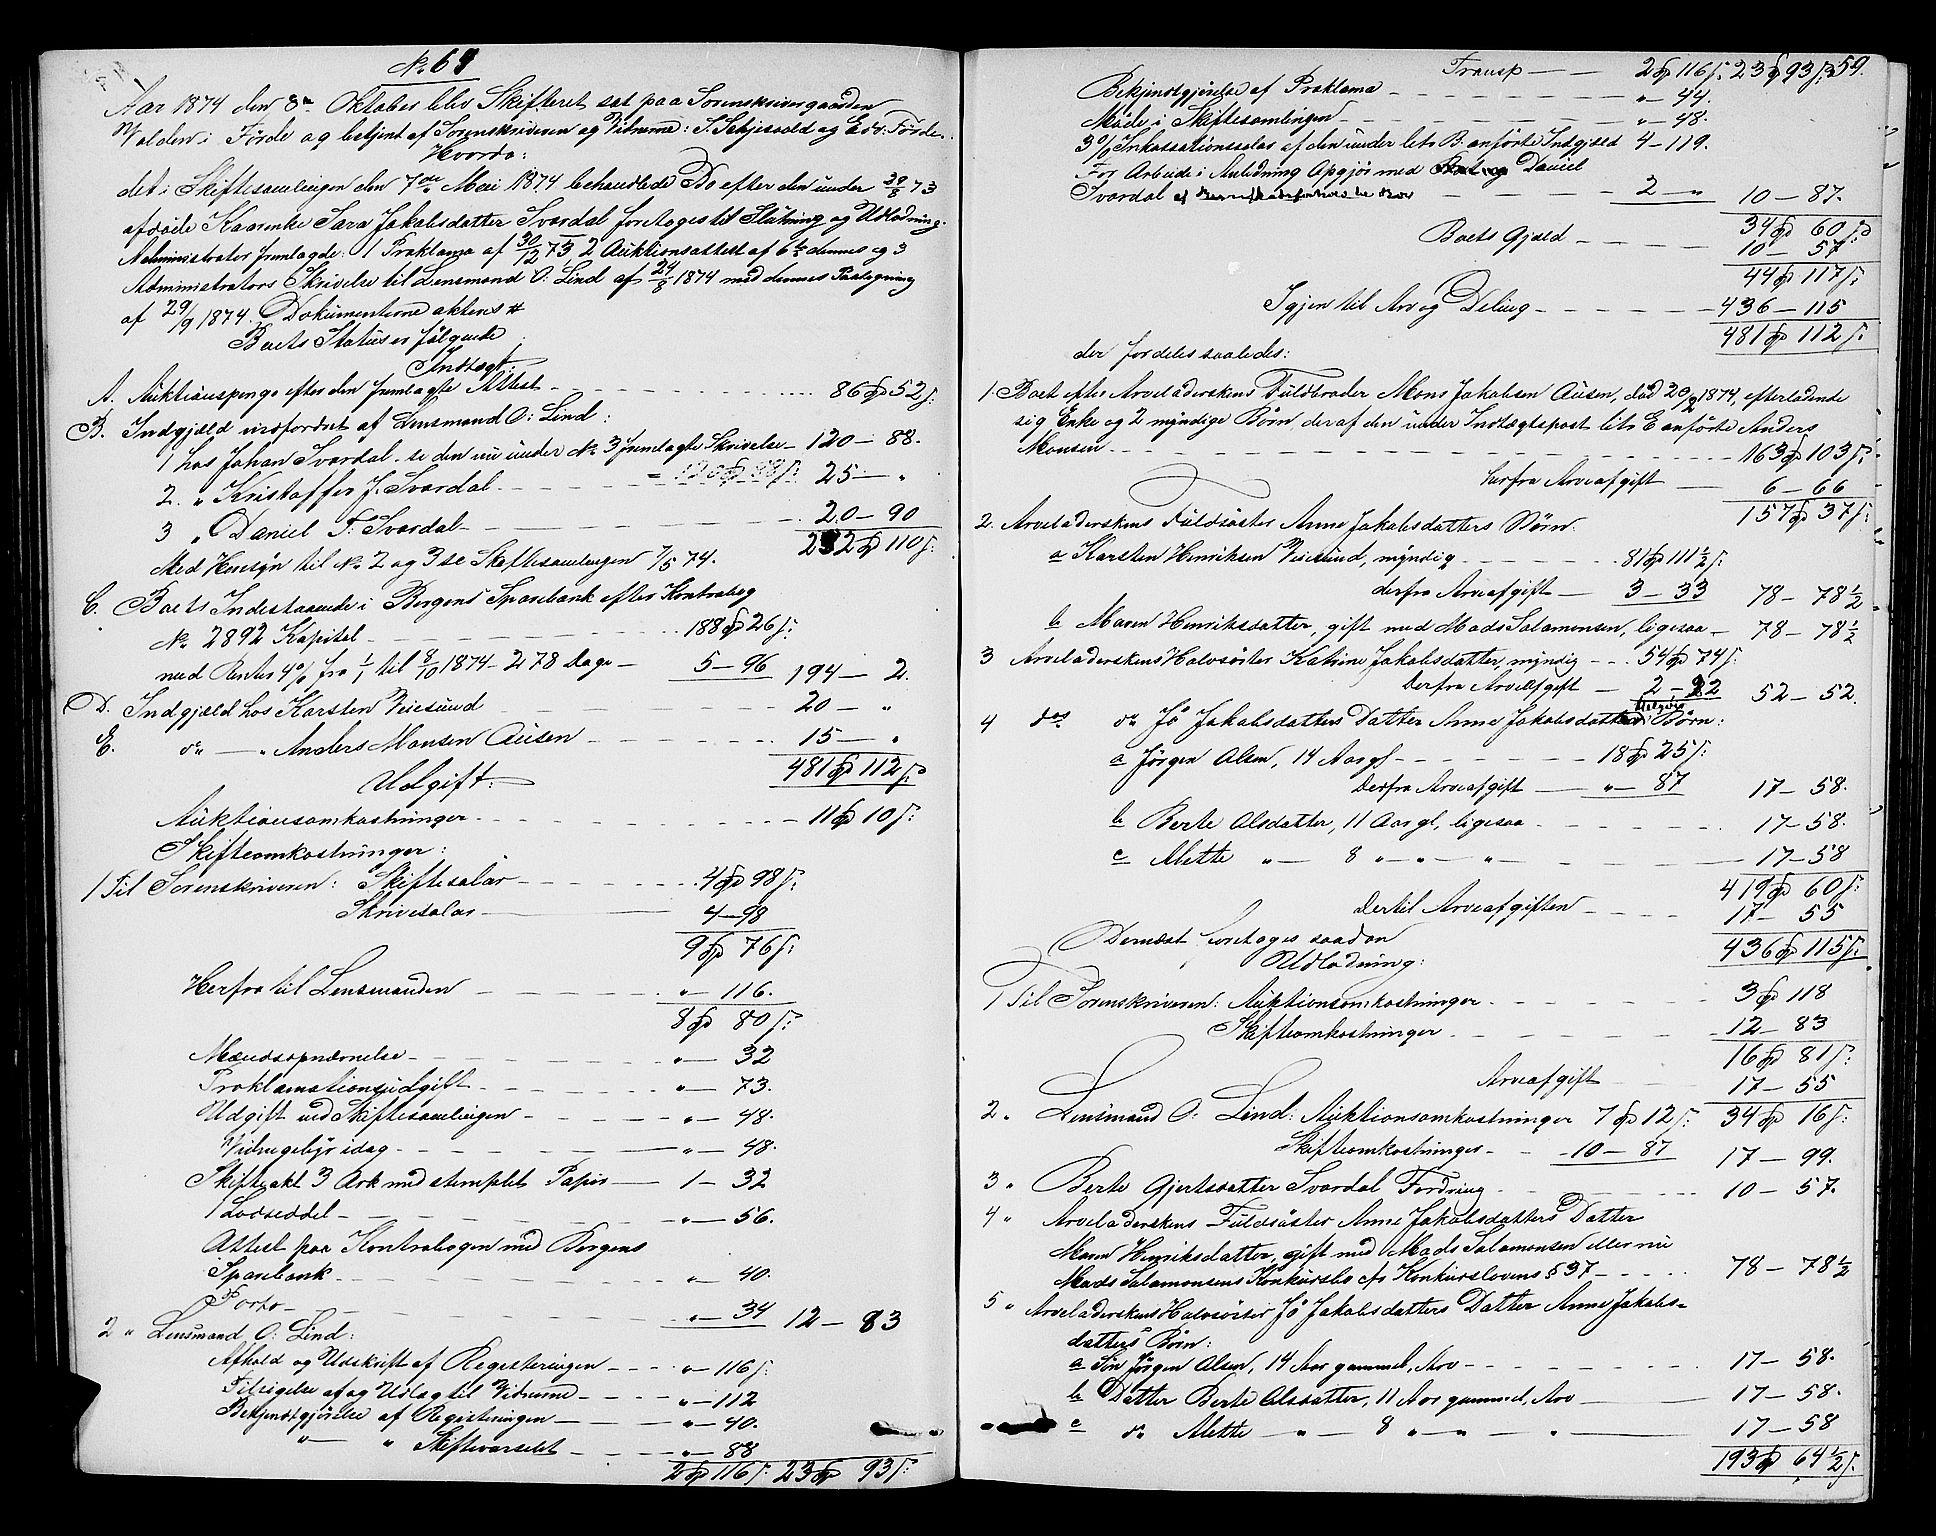 No 69
Aar 1874 den 8de Oktober blev Skifteret sat paa Sorenskrivergaarden
Valden i Förde og betjent af Sorenskriveren og Vidnerne: S. Sekjesvold og Edv. Förde.
Hvorda:
det i Skiftesamlingen den 7de Mai 1874 behandlede Bo efter den under 30/8 73
afdöde Kaarenke Sara Jakobsdatter Svardal foretoges til Slutning og Udlodning.
Administrator fremlagde: 1 Proklama af 30/12 73, 2 Auktionsattest af 6te dennes og 3
Administrators Skrivelse til Lensmand O: Lind af 24/8 1874 med dennes Paategning
af 29/9 1874. Dokumenterne aktens #
Boets Status er fölgende
Indtægt:
A. Auktionspenge efter den fremlagte Attest - 86 Spd 52 s:
B. Indgjæld indfordret af Lensmand O: Lind:
1 hos Johan Svardal se den nu under No 3 fremlagte Skrivelse - 120 - 88.
= 120 Spd 88 s:
2. " Kristoffer J. Svardal - 25 - "
3 " Daniel T: Svardal - 20 - 90
252 Spd 110 s:
Med Hensyn til No 2 og 3 se Skiftesamlingen 7/5 74.
C. Boets Indestaaende i Bergens Sparebank efter Kontrabog
No 2892 Kapital - 188 Spd 26 s:
med Renter 4% fra 1/1 til 8/10 1874 - 278 Dage - 5 - 96 194 - 2.
D. Indgjæld hos Karsten Veiesund - 20 - "
E. do - " Anders Monsen Ausen - 15 - "
481 Spd 112 s:
Udgift:
Auktionsomkostninger - 11 Spd 10 s:
Skifteomkostninger:
1 Til Sorenskriveren: Skiftesalær - 4 Spd 98 s:
Skrivesalær - 4 - 98
9 Spd 76 s:
Herfra til Lensmanden - " - 116.
8 Spd 80 s:
Mændsopnævnelse - " - 32
Proklamationsudgift - " - 73.
Udgift ved Skiftesamlingen - " - 48.
Vidnegebyr idag - " - 48.
Skifteakt 3 Ark med stemplet Papir - 1 - 32
1 Lodseddel - " - 56.
Attest paa Kontrabogen med Bergens
Sparebank - " - 40.
Porto - " - 34 12 - 83
2 " Lensmand O: Lind:
Afhold og Udskrift af Registeringen - " - 116 s:
Tilsigelse af og Udlæg til Vidnerne - " - 112
Bekjendtgjörelse af Registeringen - " - 40.
" - " Skiftevarselet - " - 88
2 Spd 116 s. 23 Spd 93 s:
59.
Transp - 2 Spd 116 s. 23 Spd 93 s:
Bekjendtgjörelse af Proklama - " - 44.
Möde i Skiftesamlingen - " - 48.
3% Inkassationssalær af den under litr B. anförte Indgjæld 4 - 119.
For Arbeide i Anledning Opgjör med Daniel
Svardal - 2 - " 10 - 87.
34 Spd 60 s:
Boets Gjæld - 10 - 57
44 Spd 117 s:
Igjen til Arv og Deling - 436 - 115
481 Spd 112 s:
der fordeles saaledes:
1. Boet efter Arveladerskens Fuldbroder Mons Jakobsen Ausen, död 20/2 1874, efterladende
sig Enke og 2 myndige Börn, deraf den under Indtægtspost litr E anförte Anders
Monsen - 163 Spd 103 s:
herfra Arveafgift - 6 - 66
157 Spd 37 s:
2. Arveladerskens Fuldsöster Anne Jakobsdatters Börn:
a Karsten Henriksen Veiesund, myndig - 81 Spd 111½ s:
derfra Arveafgift - 3 - 33 78 - 78½
b Maren Henriksdatter, gift med Mads Salamonsen, ligesaa - 78 - 78½
3 Arveladerskens Halvsöster Katrine Jakobsdatter, myndig - 54 Spd 74 s:
Derfra Arveafgift - 2 - 22 52 - 52.
4 des do Jö Jakobsdatters Datter Anne Jakobsdatters Börn:
a Jörgen Olsen, 14 Aar gl - 18 Spd 25 s:
Derfra Arveafgift - " - 87 17 - 58.
b Berte Olsdatter, 11 Aar gl, ligesaa - 17 - 58.
c Mette " - 8 " - " - " - 17 - 58
419 Spd 60 s:
Dertil Arveafgiften - 17 - 55
436 Spd 115 s:
Dernæst foretoges saadan
Udlodning:
1 Til Sorenskriveren: Auktionsomkostninger - 3 Spd 118
Skifteomkostninger - 12 - 83
16 Spd 81 s:
Arveafgift 17 - 55
34 Spd 16 s:
2 " Lensmand O: Lind: Auktionsomkostninger 7 Spd 12 s:
Skifteomkostninger - 10 - 87 17 - 99.
3 " Berte Gjertsdatter Svardal Fordring - 10 - 57.
4 " Arveladerskens Fuldsöster Anne Jakobsdatters Datter
Maren Henriksdatter, gift med Mads Salamonsen eller nu
Mads Salamonsens Konkursbo cfr Konkurslovens § 37 - 78 - 78½
5 " Arveladerskens Halvsöster Jö Jakobsdatters Datter Anne Jakobs-
datters Börn:
a Sön Jörgen Olsen, 14 Aar gammel, Arv - 17 - 58.
b Datter Berte Olsdatter, 11 Aar gammel, Arv - 17 - 58.
c do Mette - " - 8 " - " - " - 17 - 58
193 Spd 64½ s.